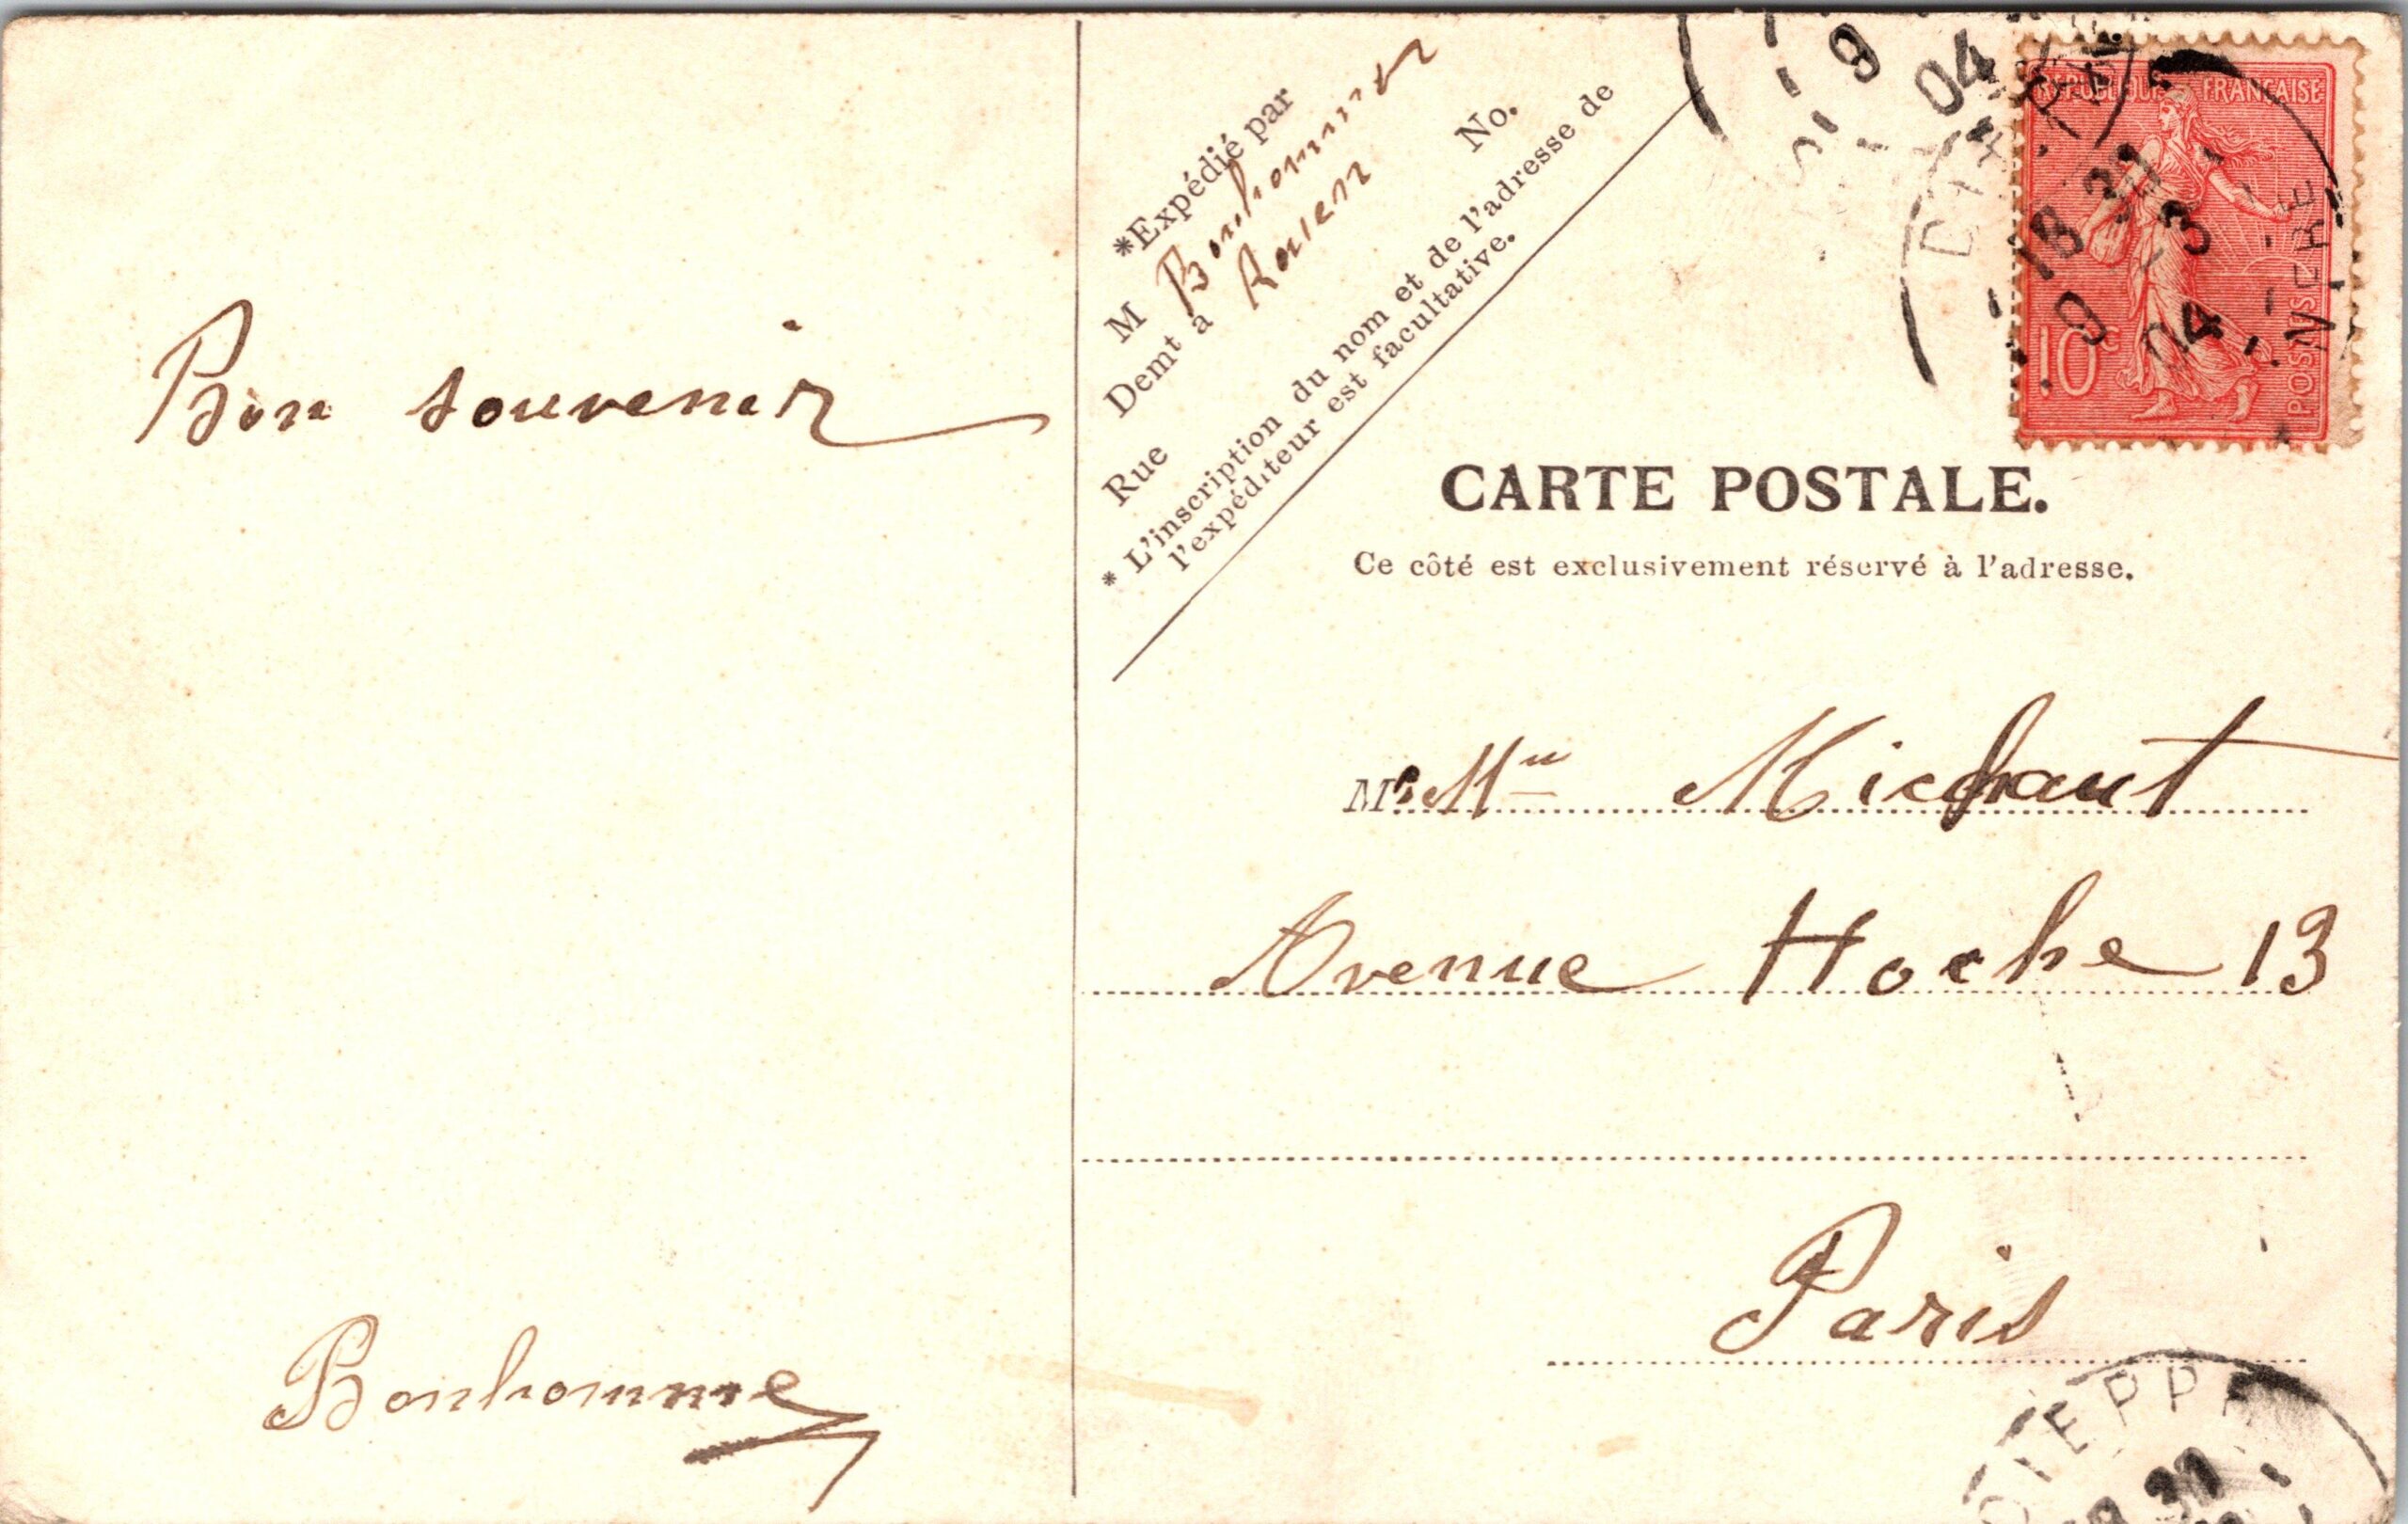 Bon souvenir
Bonhomme
*Expédié par
M Bonhomme
Demt à Rouen
Rue No.
* L'inscription du nom et de l'adresse de
l'expéditeur est facultative.
9
04
DIEPPE
18 30
9 -3
04
INFRE
REPUBLIQUE FRANÇAISE
10c
POSTES
CARTE POSTALE.
Ce côté est exclusivement réservé à l'adresse.
M Michaut
Avenue Hoche 13
Paris
DIEPPE
30